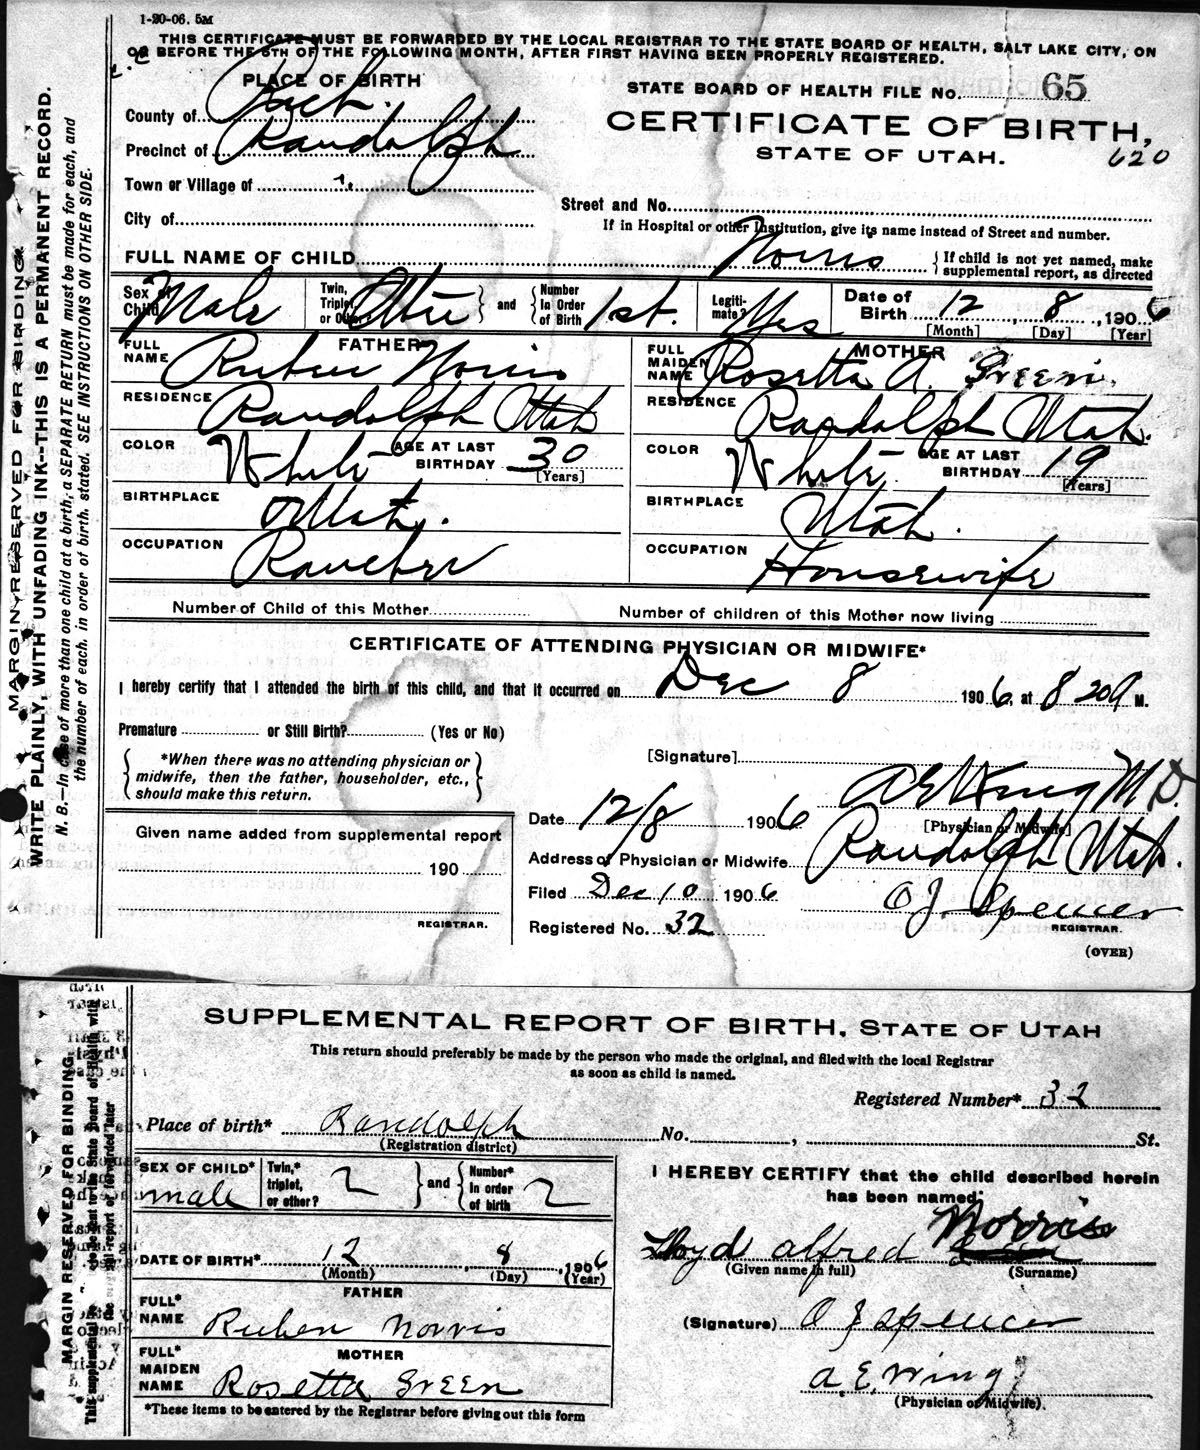 1-20-06. 5M
THIS CERTIFICATE MUST BE FORWARDED BY THE LOCAL REGISTRAR TO THE STATE BOARD OF HEALTH, SALT LAKE CITY, ON
OR BEFORE THE 5TH OF THE FOLLOWING MONTH, AFTER FIRST HAVING BEEN PROPERLY REGISTERED.
PLACE OF BIRTH
STATE BOARD OF HEALTH FILE No. 65
County of Rich.
CERTIFICATE OF BIRTH,
Precinct of Randolph
STATE OF UTAH.
620
Town or Village of
Street and No.
City of
If in Hospital or other Institution, give its name instead of Street and number.
FULL NAME OF CHILD Norris { If child is not yet named, make supplemental report, as directed
Sex of Child Male Twin, Triplet, or Other? } and { Number In Order of Birth 1st. Legiti-mate? Yes Date of Birth 12, 8, 1906
[Month] [Day] [Year]
FATHER MOTHER
FULL NAME Ruben Norris FULL MAIDEN NAME Rosetta A. Green.
RESIDENCE Randolph Utah RESIDENCE Randolph Utah.
COLOR White AGE AT LAST BIRTHDAY 30 [Years] COLOR White. AGE AT LAST BIRTHDAY 19 [Years]
BIRTHPLACE Utah. BIRTHPLACE Utah.
OCCUPATION Rancher OCCUPATION Housewife
Number of Child of this Mother Number of children of this Mother now living
CERTIFICATE OF ATTENDING PHYSICIAN OR MIDWIFE*
I hereby certify that I attended the birth of this child, and that it occurred on Dec 8 1906, at 8 20 A M.
Premature or Still Birth? (Yes or No)
*When there was no attending physician or midwife, then the father, householder, etc., should make this return.
[Signature] A E Wing M D.
[Physician or Midwife]
Date 12/8 1906
Address of Physician or Midwife Randolph Utah.
Filed Dec 10 1906 O J. Spencer
REGISTRAR.
Registered No. 32
(OVER)
Given name added from supplemental report
190
REGISTRAR.
MARGIN RESERVED FOR BINDING
WRITE PLAINLY, WITH UNFADING INK--THIS IS A PERMANENT RECORD.
N. B.—In case of more than one child at a birth, a SEPARATE RETURN must be made for each, and
the number of each, in order of birth, stated. SEE INSTRUCTIONS ON OTHER SIDE.
SUPPLEMENTAL REPORT OF BIRTH, STATE OF UTAH
This return should preferably be made by the person who made the original, and filed with the local Registrar
as soon as child is named.
Registered Number* 32
Place of birth* Randolph No. , St.
(Registration district)
SEX OF CHILD* male Twin,* triplet, or other? 2 } and { Number* In order of birth 2
I HEREBY CERTIFY that the child described herein
has been named:
DATE OF BIRTH* 12, 8, 1906
(Month) (Day) (Year)
Lloyd alfred Norris
(Given name in full) (Surname)
FATHER
FULL* NAME Ruben Norris
(Signature) O J Spencer
MOTHER
FULL* MAIDEN NAME Rosetta Green
A. E. Wing
(Physician or Midwife).
*These items to be entered by the Registrar before giving out this form
MARGIN RESERVED FOR BINDING